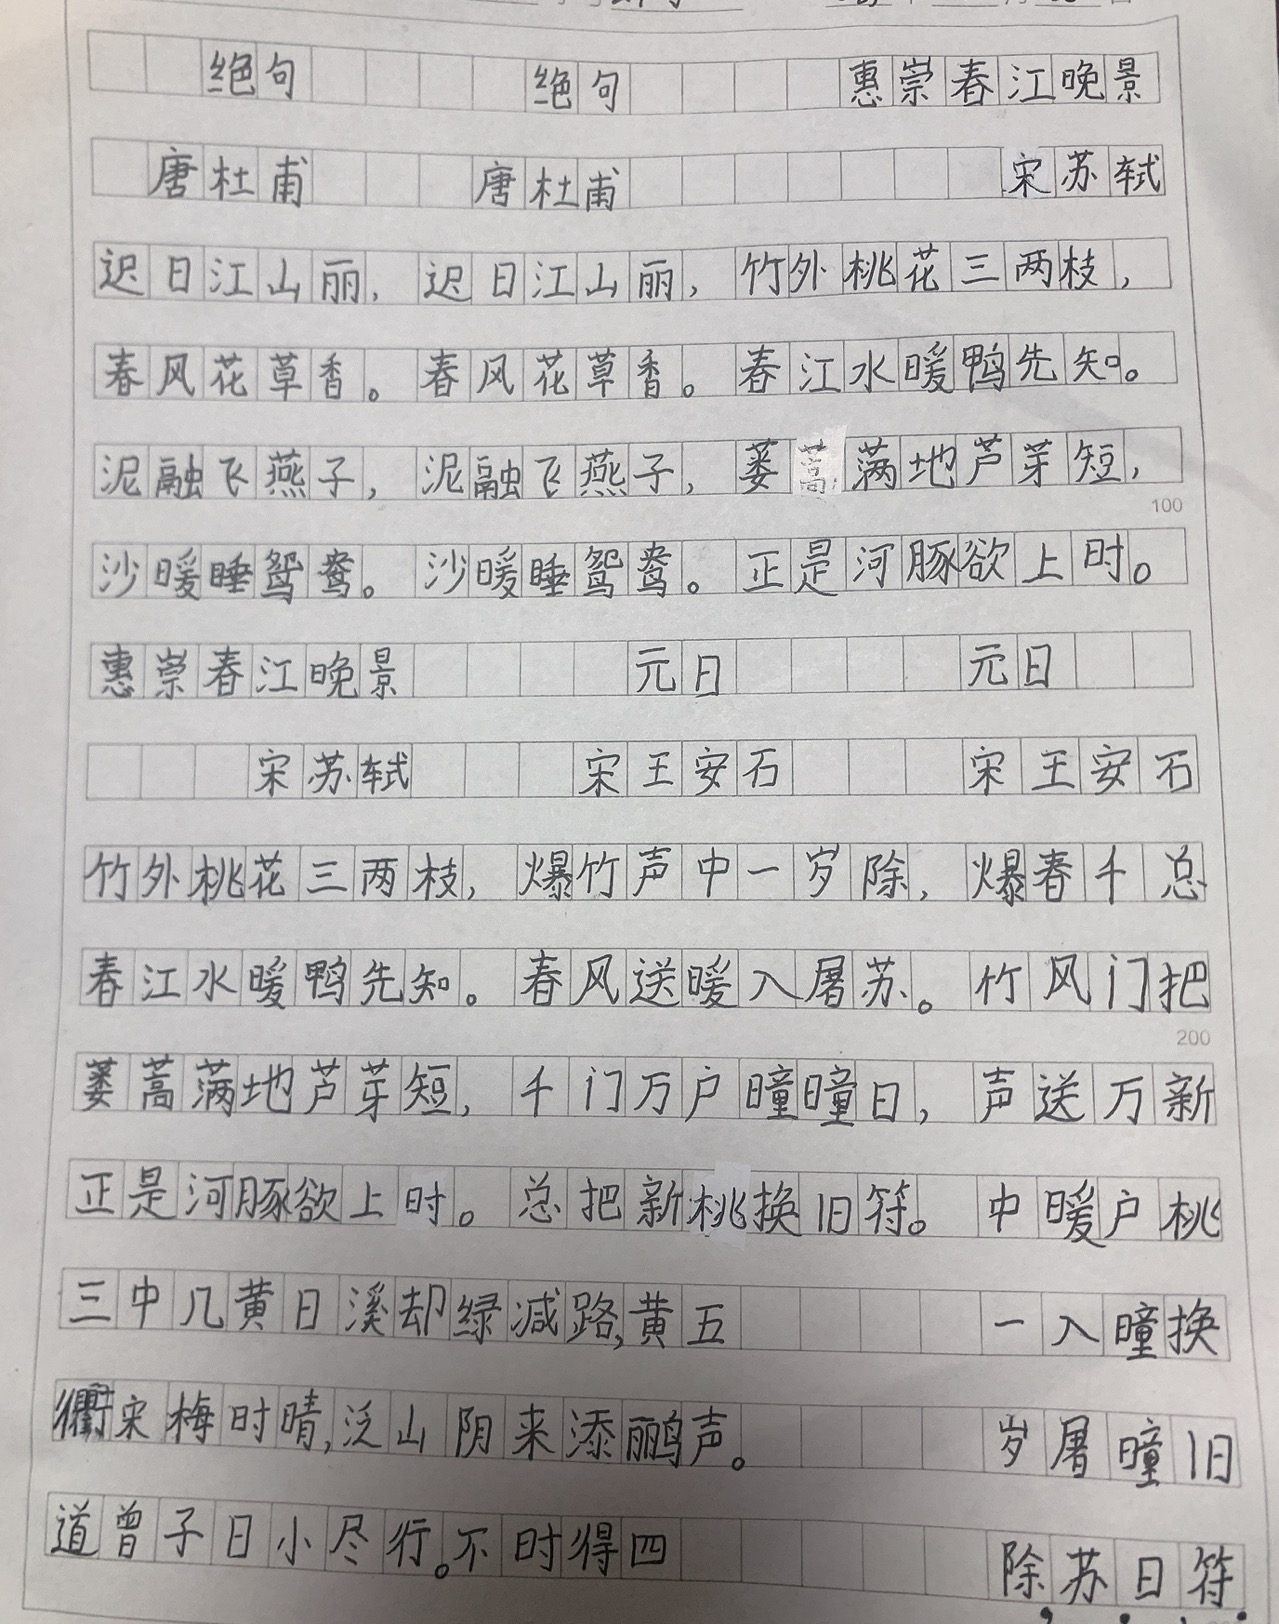 绝句 绝句 惠崇春江晚景
唐杜甫 唐杜甫 宋苏轼
迟日江山丽，迟日江山丽，竹外桃花三两枝，
春风花草香。春风花草香。春江水暖鸭先知。
泥融飞燕子，泥融飞燕子，蒌蒿满地芦芽短，
100
沙暖睡鸳鸯。沙暖睡鸳鸯。正是河豚欲上时。
惠崇春江晚景 元日 元日
宋苏轼 宋王安石 宋王安石
竹外桃花三两枝，爆竹声中一岁除，爆春千总
春江水暖鸭先知。春风送暖入屠苏。竹风门把
200
蒌蒿满地芦芽短，千门万户曈曈日，声送万新
正是河豚欲上时。总把新桃换旧符。中暖户桃
三中几黄日溪却绿减路，黄五 一入曈换
衢宋梅时晴，泛山阴来添鹂声。 岁屠曈旧
道曾子日小尽行。不时得四 除，苏。日，符。